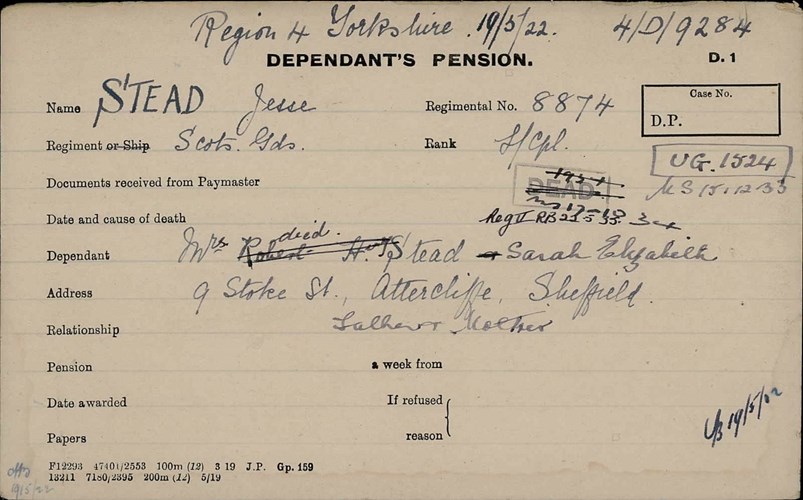 Region 4 Yorkshire. 19/5/22. 4/D/9284
DEPENDANT'S PENSION. D. 1
Name STEAD Jesse Regimental No. 8874
Case No.
D.P.
Regiment or Ship Scots. Gds. Rank L/Cpl.
UG. 1524
Documents received from Paymaster DEAD MS 15.12.33
Date and cause of death
died.
Dependant Mrs Robert H. Stead Sarah Elizabeth
Address 9 Stoke St., Attercliffe, Sheffield.
Relationship Father & Mother
Pension a week from
Date awarded If refused
Papers reason
19/5/22
F12293 47401/2553 100m (12) 3 19 J.P. Gp. 159
13211 7180/2395 200m (12) 5/19